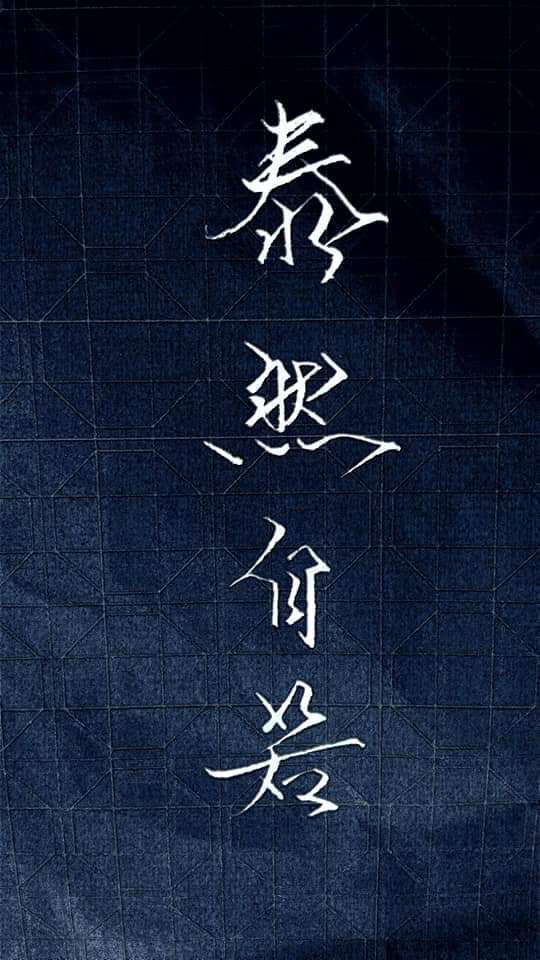 泰然自若